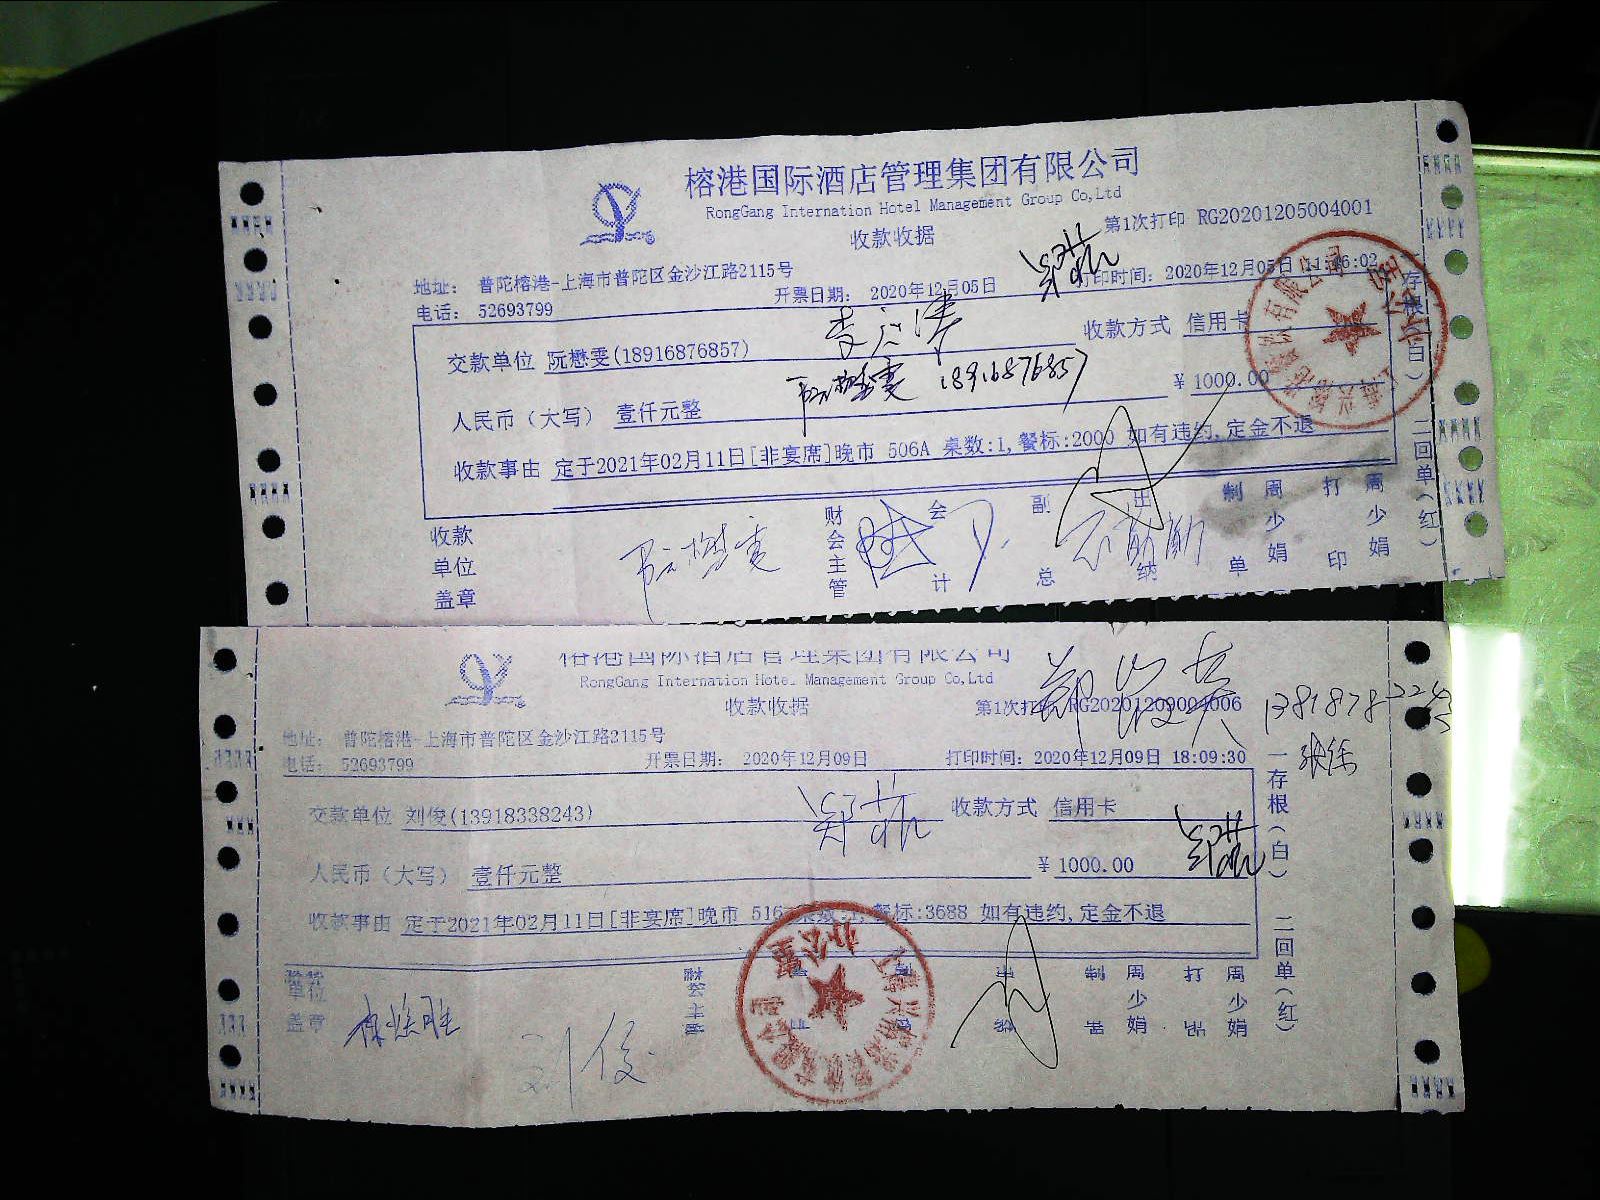 榕港国际酒店管理集团有限公司
RongGang Internation Hotel Management Group Co,Ltd
收款收据
第1次打印 RG20201205004001
地址： 普陀榕港-上海市普陀区金沙江路2115号
电话： 52693799
开票日期： 2020年12月05日
打印时间： 2020年12月05日 11:46:02
交款单位 阮懋雯(18916876857)
收款方式 信用卡
阮懋雯 18916876857
人民币（大写） 壹仟元整
￥ 1000.00
收款事由 定于2021年02月11日[非宴席]晚市 506A 桌数:1,餐标:2000 如有违约,定金不退
收款单位盖章
阮懋雯
财会主管
会计
副总
出纳
制单
周少娟
打印
周少娟
一存根(白) 二回单(红)
榕港国际酒店管理集团有限公司
RongGang Internation Hotel Management Group Co,Ltd
收款收据
第1次打印 RG20201209004006
地址： 普陀榕港-上海市普陀区金沙江路2115号
电话： 52693799
开票日期： 2020年12月09日
打印时间: 2020年12月09日 18:09:30
交款单位 刘俊(13918338243)
收款方式 信用卡
人民币（大写） 壹仟元整
￥ 1000.00
收款事由 定于2021年02月11日[非宴席]晚市 516 桌数:1,餐标:3688 如有违约,定金不退
单位
盖章
刘俊
周少娟
周少娟
一存根(白) 二回单(红)
办公室